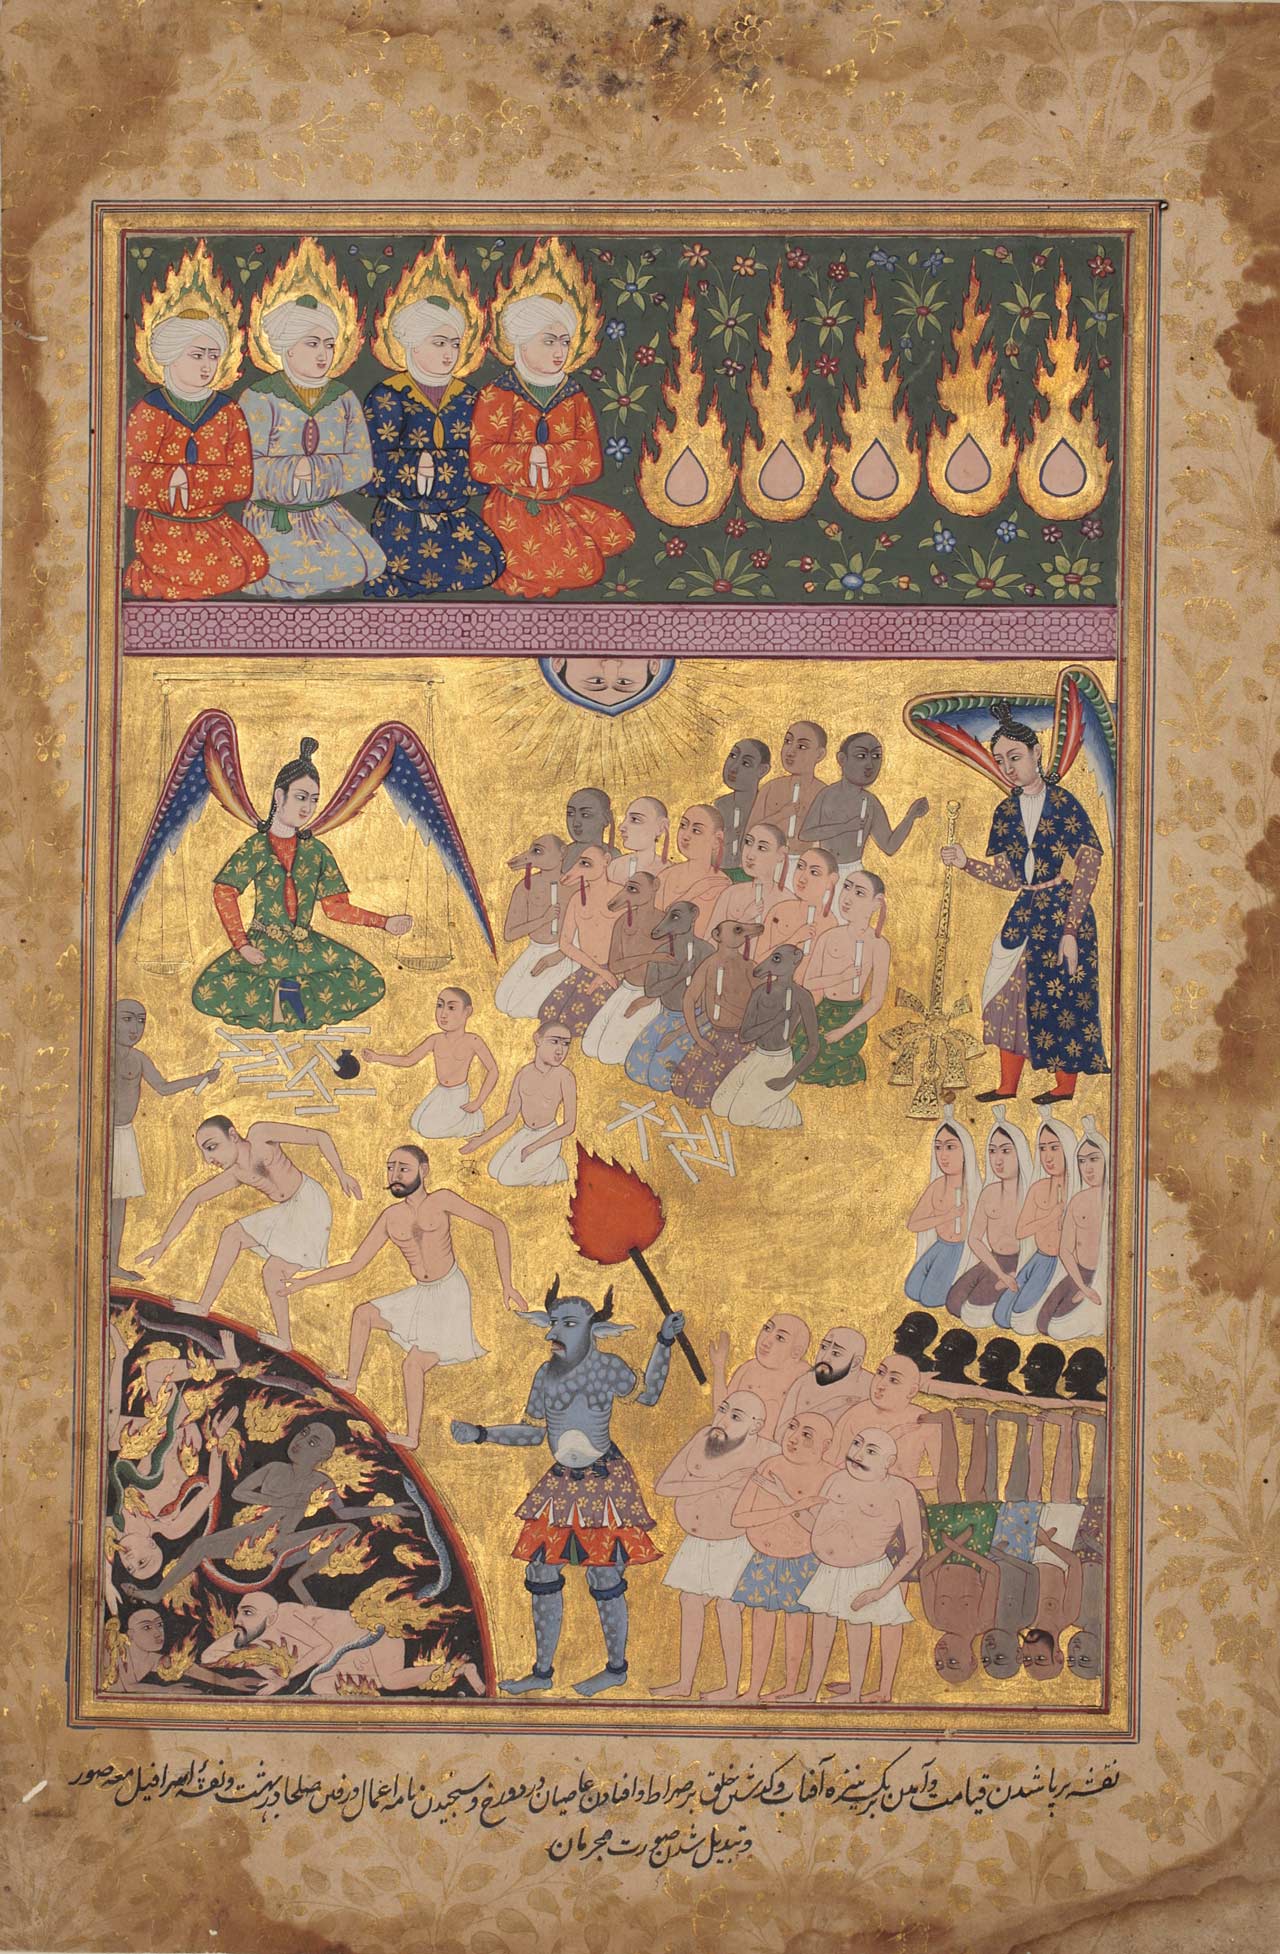 نقشه برپا شدن قیامت و آمدن بر یک نیزه آفتاب و گذشتن خلق بر صراط و افتادن عاصیان در دوزخ و سنجیدن نامه اعمال و رفتن صلحا در بهشت و نقشه اسرافیل معه صور
و تبدیل شدن صورت مجرمان